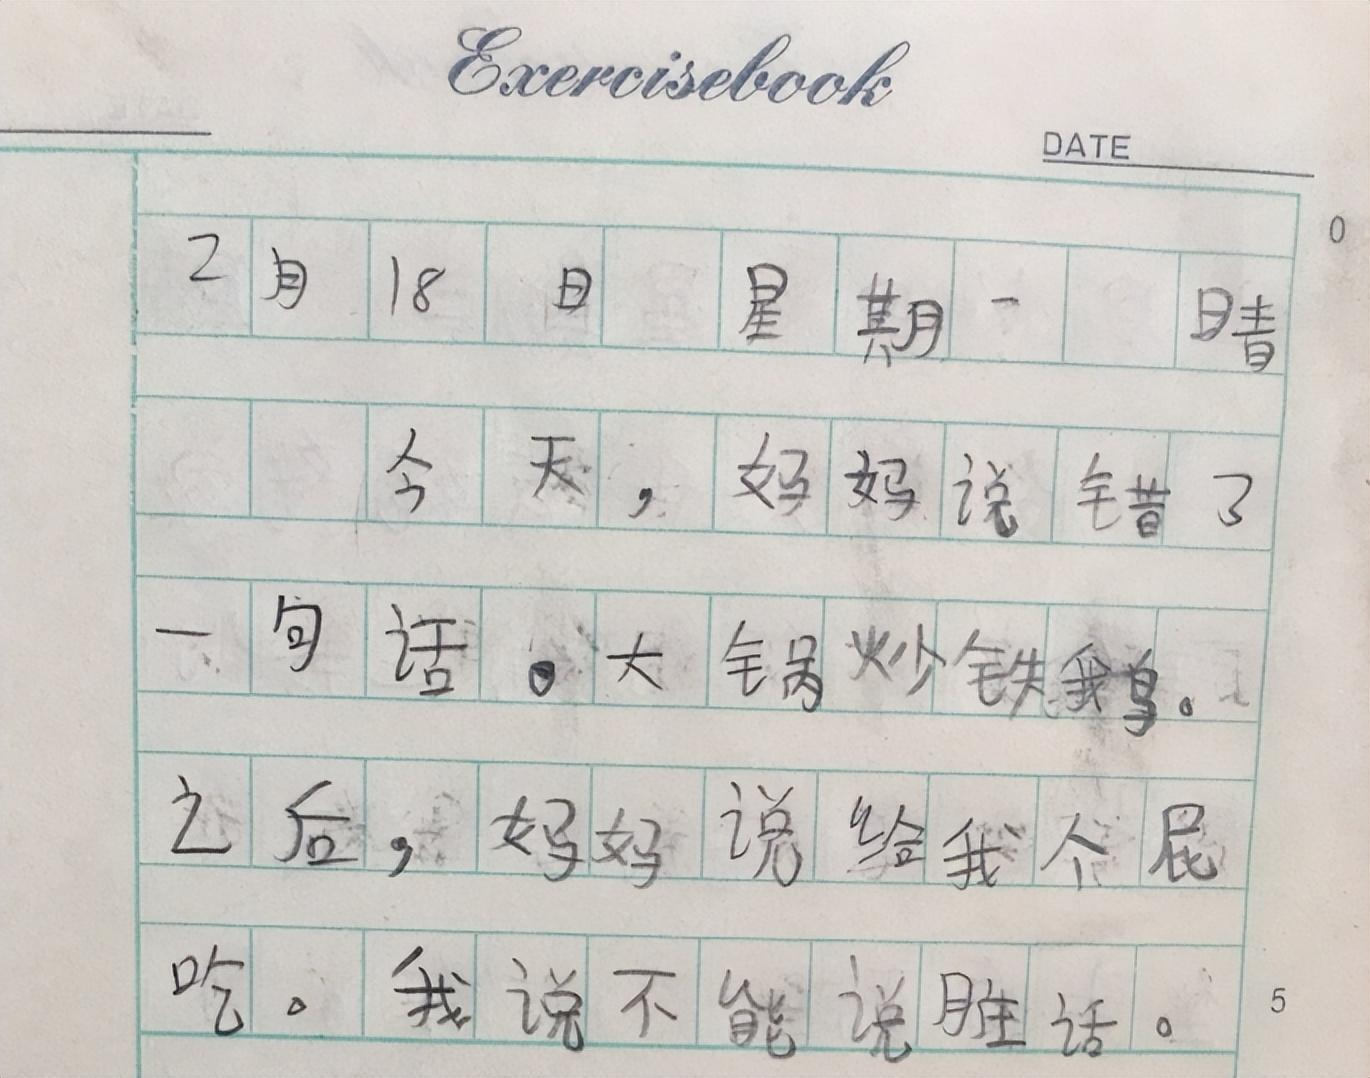 Exercisebook
DATE
0
2月18日 星期一 晴
今天，妈妈说错了
一句话。大锅炒铁我拿。
之后，妈妈说给我个屁
吃。我说不能说脏话。
5